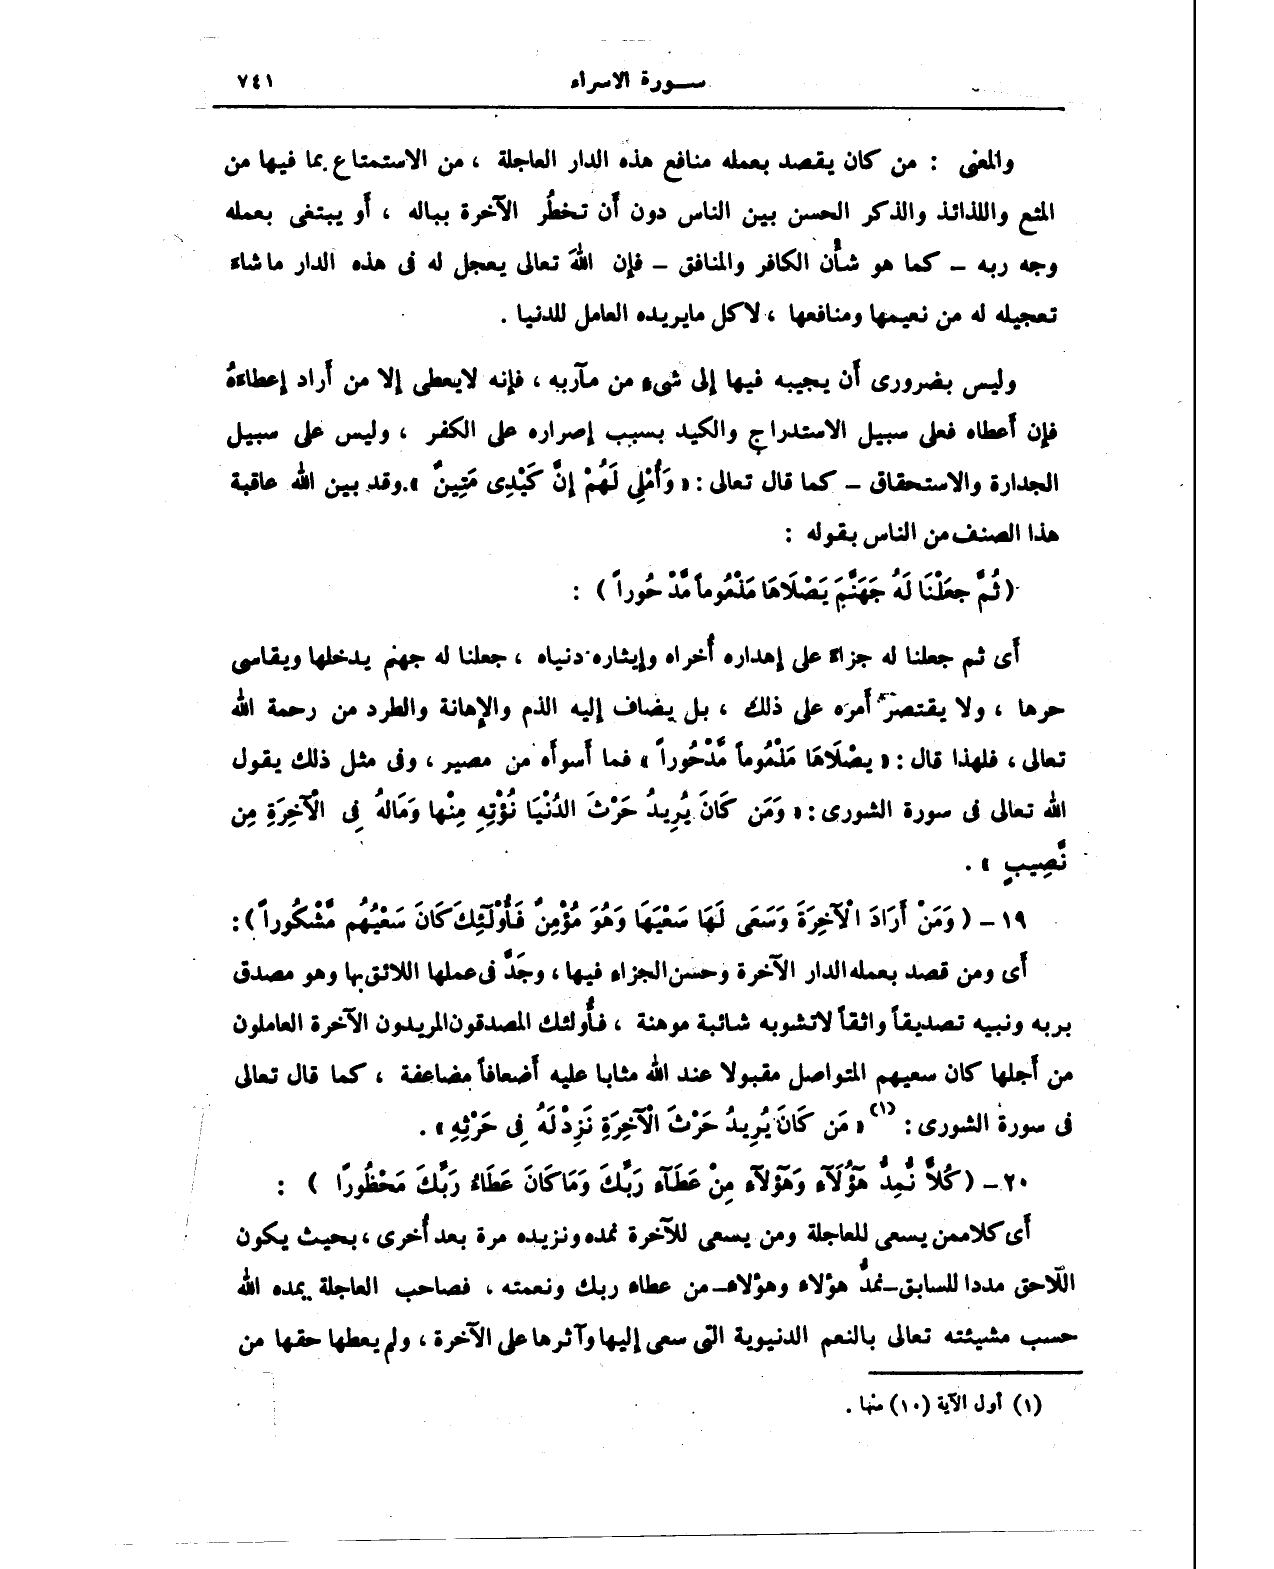 سورة الاسراء ٧٤١
والمعنى : من كان يقصد بعمله منافع هذه الدار العاجلة ، من الاستمتاع بما فيها من
المتع واللذائذ والذكر الحسن بين الناس دون أن تخطُر الآخرة بباله ، أو يبتغى بعمله
وجه ربه – كما هو شأن الكافر والمنافق – فإن اللهَ تعالى يعجل له فى هذه الدار ماشاء
تعجيله له من نعيمها ومنافعها ، لاكل مايريده العامل للدنيا .
وليس بضرورى أن يجيبه فيها إلى شىء من مآربه ، فإنه لايعطى إلا من أراد إعطاءهُ
فإن أعطاه فعلى سبيل الاستدراج والكيد بسبب إصراره على الكفر ، وليس على سبيل
الجدارة والاستحقاق – كما قال تعالى : « وَأُمْلِى لَهُمْ إِنَّ كَيْدِى مَتِينٌ ».وقد بين الله عاقبة
هذا الصنف من الناس بقوله :
( ثُمَّ جعَلْنَا لَهُ جَهَنَّمَ يَصْلَاهَا مَذْمُوماً مَّدْحُوراً ) :
أى ثم جعلنا له جزاءً على إهداره أُخراه وإيثاره دنياه ، جعلنا له جهنم يدخلها ويقاسى
حرها ، ولا يقتصر أمره على ذلك ، بل يضاف إليه الذم والإهانة والطرد من رحمة الله
تعالى ، فلهذا قال : « يصْلَاهَا مَذْمُوماً مَّدْحُوراً » فما أسوأه من مصير ، وفى مثل ذلك يقول
الله تعالى فى سورة الشورى : « وَمَن كَانَ يُرِيدُ حَرْثَ الدُنْيَا نُؤْتِهِ مِنْها وَمَالهُ فِى الْآخِرَةِ مِن
نَّصِيبٍ » .
١٩ – ( وَمَنْ أَرَادَ الْآخِرَةَ وَسَعَى لَهَا سَعْيَهَا وَهُوَ مُؤْمِنٌ فَأُوْلَئِكَ كَانَ سَعْيُهُم مَّشْكُوراً ) :
أى ومن قصد بعمله الدار الآخرة وحسن الجزاء فيها ، وجَدَّ فى عملها اللائق بها وهو مصدق
بربه ونبيه تصديقاً واثقاً لاتشوبه شائبة موهنة ، فأُولئك المصدقون المريدون الآخرة العاملون
من أجلها كان سعيهم المتواصل مقبولا عند الله مثابا عليه أضعافاً مضاعفة ، كما قال تعالى
فى سورة الشورى : (١) « مَن كَانَ يُرِيدُ حَرْثَ الْآخِرَةِ نَزِدْ لَهُ فِى حَرْثِهِ » .
٢٠ – ( كُلاًّ نُّمِدُّ هَؤُلَآء وَهَؤلآء مِنْ عَطَآء رَبِّكَ وَمَا كَانَ عَطَاءُ رَبِّكَ مَحْظُورًا ) :
أى كلا ممن يسعى للعاجلة ومن يسعى للآخرة نمده ونزيده مرة بعد أُخرى ، بحيث يكون
اللَّاحق مددا للسابق – نمدُّ هؤلاء وهؤلاء – من عطاء ربك ونعمته ، فصاحب العاجلة يمده الله
حسب مشيئته تعالى بالنعم الدنيوية التى سعى إليها وآثرها على الآخرة ، ولم يعطها حقها من
(١) أول الآية (١٠) منها .